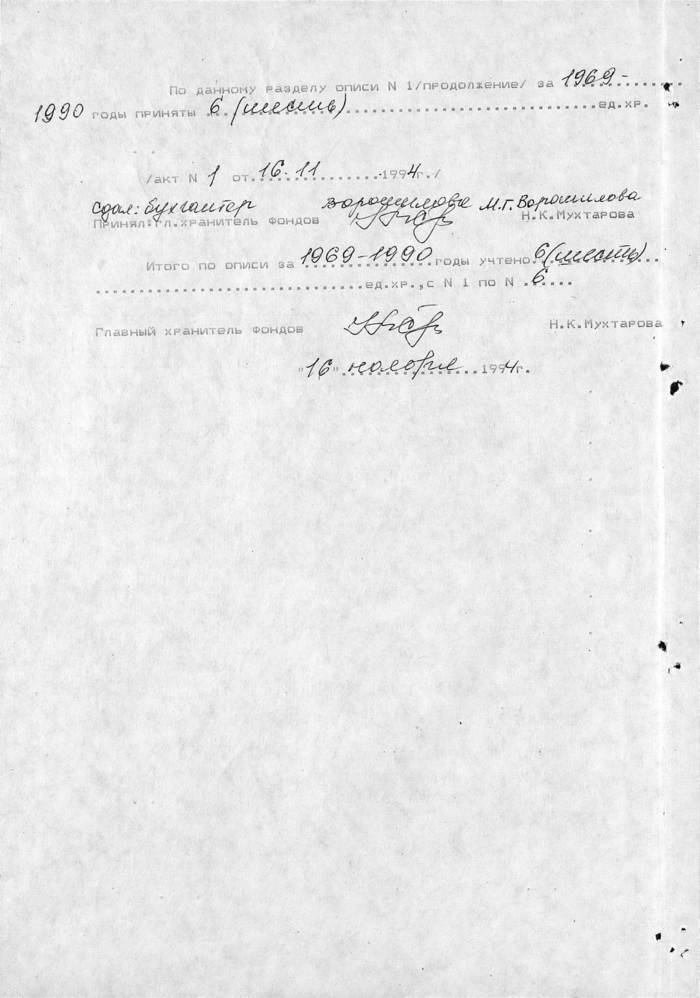 По данному разделу описи N 1/продолжение/ за 1969-
1990 годы приняты 6 (шесть) ед.хр.
/акт N 1 от 16.11 1994г./
Сдал: бухгалтер Ворошилова М.Г. Ворошилова
Принял: гл.хранитель фондов Н.К.Мухтарова
Итого по описи за 1969-1990 годы учтено 6 (шесть)
ед.хр.,с N 1 по N 6
Главный хранитель фондов Н.К.Мухтарова
"16" ноября 1994г.